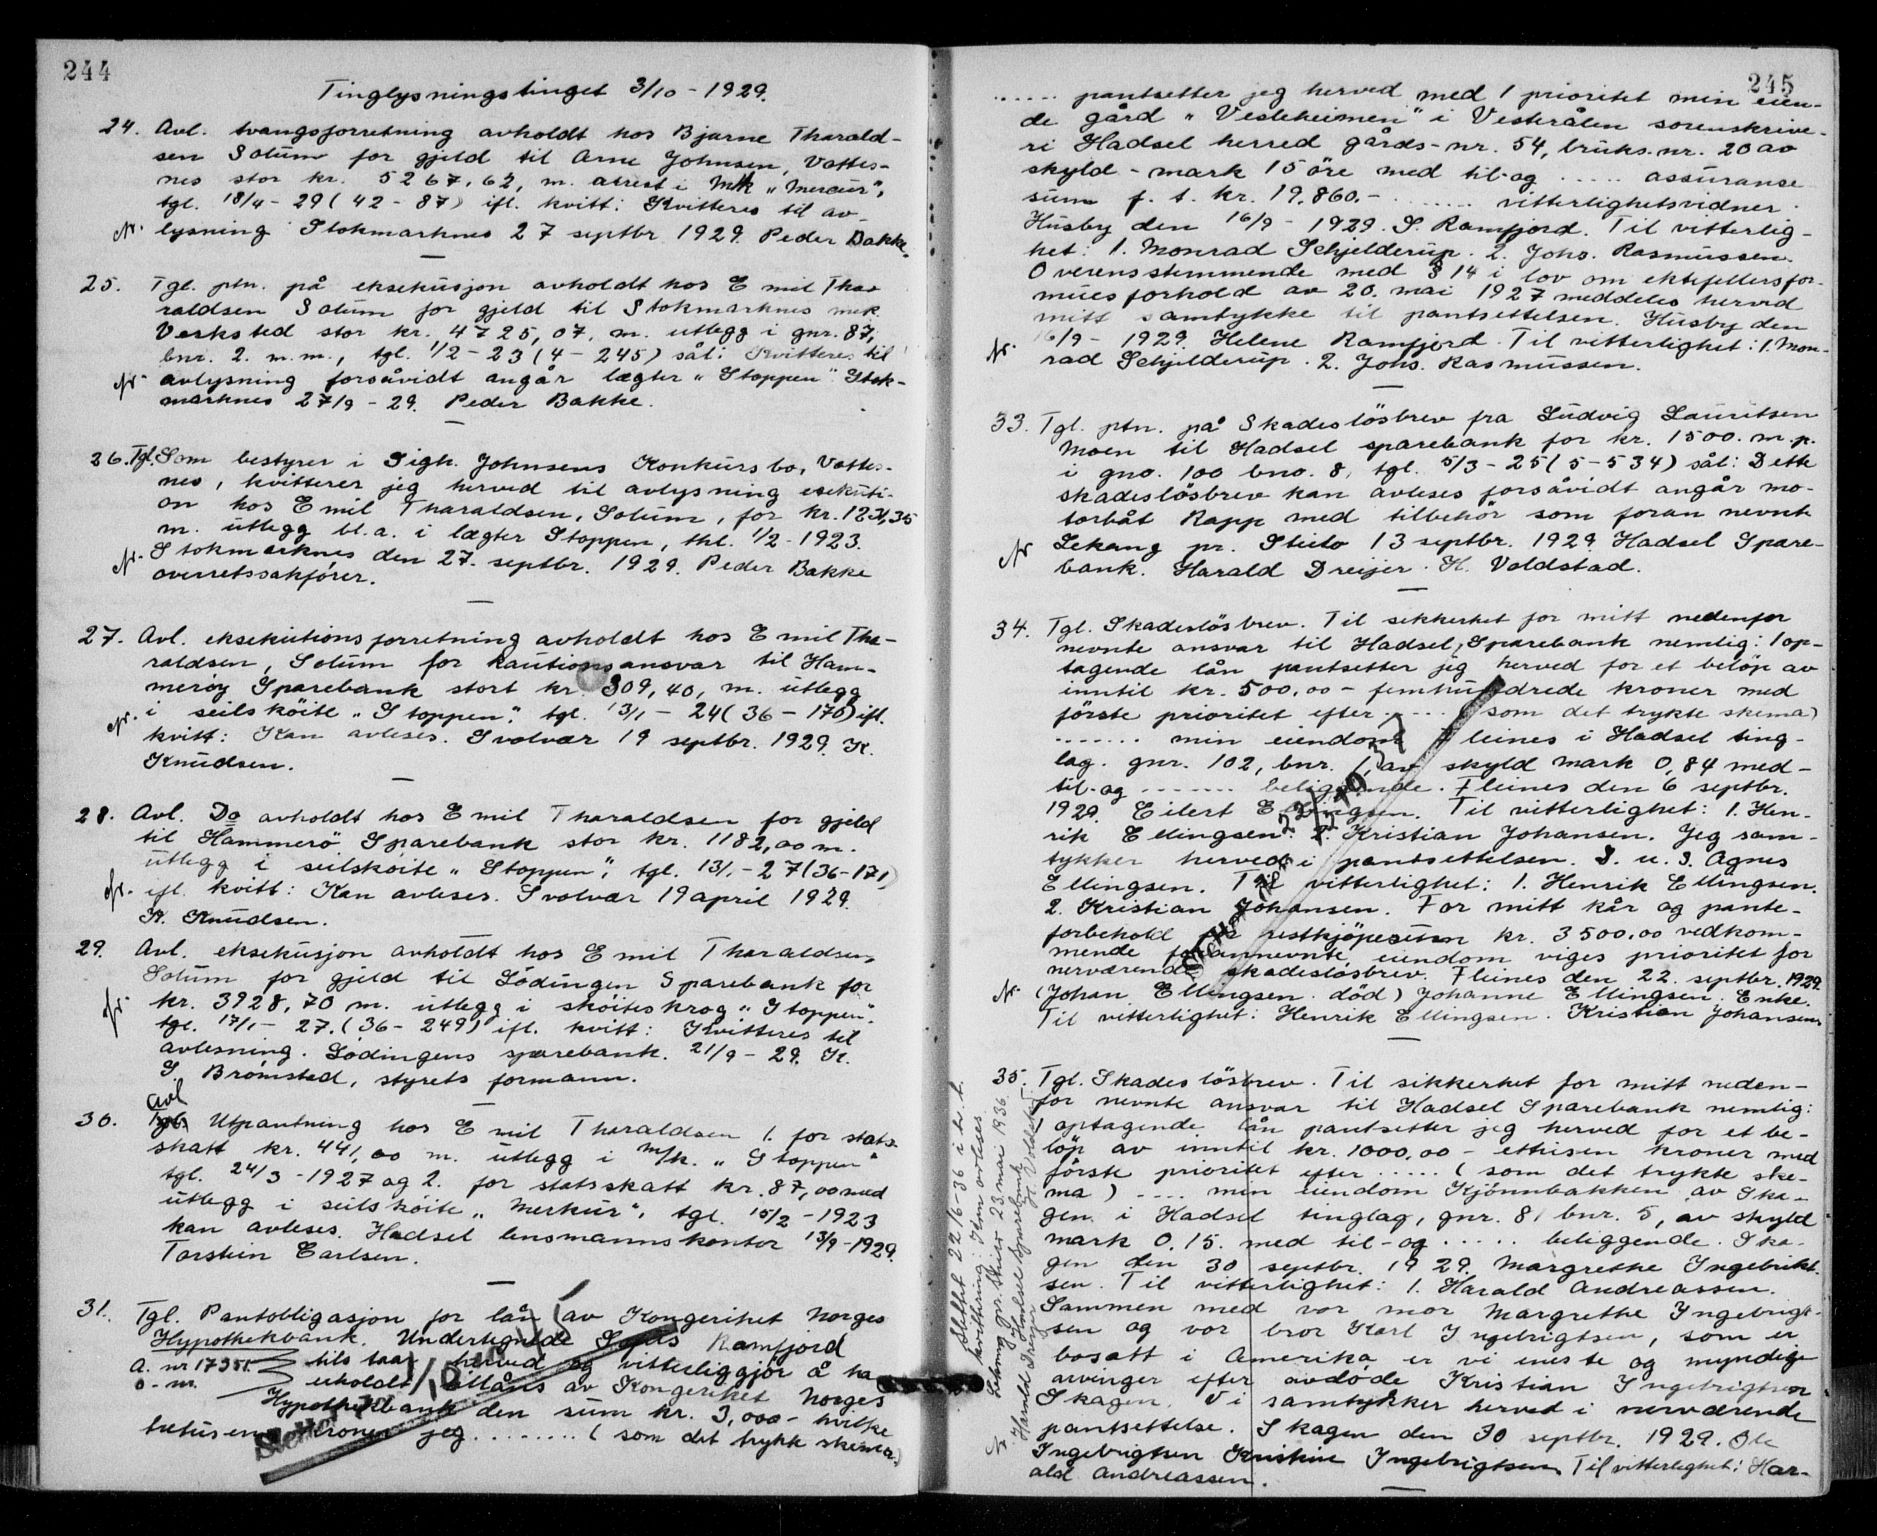 244
Tinglysningstinget 3/10 - 1929.
24. Avl. tvangsforretning avholdt hos Bjarne Tharald-
sen Solum for gjeld til Arne Johnsen, Vottes-
nes stor kr. 5267,62, m. arrest i M/k „Mercur",
tgl. 18/4 - 29 (42 - 87) ifl. kvitt: Kvitteres til av-
lysning Stokmarknes 27 septbr 1929. Peder Bakke.
25. Tgl. ptn. på eksekusjon avholdt hos Emil Tha-
raldsen Solum for gjeld til Stokmarknes mek.
Verksted stor kr. 4725,07, m. utlegg i gnr. 87,
bnr. 2. m.m., tgl. 1/2 - 23 (4 - 245) sål: Kvitteres til
avlysning forsåvidt angår lægter „Stoppen". Stok-
marknes 27/9 - 29. Peder Bakke.
26. Tgl. Som bestyrer i Sigh. Johnsens Konkursbo, Vottes-
nes, kvitterer jeg herved til avlysning esekuti-
on hos Emil Tharaldsen, Solum, for kr.
m. utlegg bl.a. i lægter Stoppen, thl. 1/2 - 1923.
Stokmarknes den 27. septbr. 1929. Peder Bakke
overretssakfører.
27. Avl. eksekutionsforretning avholdt hos Emil Tha-
raldsen, Solum for kautionsansvar til Ham-
merøy Sparebank stort kr. 309,40, m. utlegg
i seilskøite „Stoppen", tgl. 13/1 - 24 (36 - 170) ifl.
kvitt: Kan avleses. Svolvær 19 septbr. 1929. K.
Knudsen.
28. Avl. Do avholdt hos Emil Tharaldsen for gjeld
til Hammerö Sparebank stor kr. 1182,00 m.
utlegg i seilskøite „Stoppen", tgl. 13/1 - 27 (36-171)
ifl. kvitt: Kan avleses. Svolvær 19 april 1929.
K. Knudsen.
29. Avl. eksekusjon avholdt hos Emil Tharaldsen,
Solum for gjeld til Lödingen Sparebank for
kr. 3928,70 m. utlegg i skøiteskrog „Stoppen".
tgl. 17/1 - 27. (36 - 249) ifl. kvitt: Kvitteres til
avlesning. Lödingens sparebank. 21/9 - 29. K.
S Brømstad, styrets formann.
avl
30. Utpantning hos Emil Tharaldsen 1. for stats
skatt kr. 441,00 m. utlegg i m/k. „Stoppen"
tgl. 24/3 - 1927 og 2. for statsskatt kr. 87,00 med
utlegg i seilskøite „Merkur", tgl. 15/2 - 1923
kan avleses. Hadsel lensmannskontor 13/9 - 1929.
Torstein Carlsen.
31. Tgl. Pantobligasjon for lån av Kongeriket Norges
Hypothekbank. Undertegnede Ramfjord
A. nr 17351. tilstaar herved og vitterliggjør å ha
o - m. erholdt tillåns av Kongeriket Norges
Hypothekbank den sum kr. 3,000 - hvilke
tretusen kroner jeg ........ (som det trykk skema)
Slettet
245
...... pantsetter jeg herved med 1 prioritet min eien-
de gård „Vesleheimen" i Vesterålen sorenskrive-
ri Hadsel herred gårds-nr. 54, bruks.nr. 20 av
skyld - mark 15 öre med til-og ..... assuranse
sum f. t. kr. 19,860.- ....... vitterlighetsvidner.
Husby den 16/9 - 1929. S. Ramfjord. Til vitterlig-
het: 1. Monrad Schjelderup. 2. Johs. Rasmussen.
Overensstemmende med § 14 i lov om ektefellersfor-
muesforhold av 20. mai 1927 meddeles herved
mitt samtykke til pantsettelsen. Husby den
16/9 - 1929. Helene Ramfjord. Til vitterlighet: 1. Mon-
rad Schjelderup. 2. Johs. Rasmussen.
33. Tgl. ptn. på Skadeslösbrev fra Ludvig Lauritsen
Moen til Hadsel sparebank for kr. 1500. m.p.
i gno. 100 bno. 8, tgl. 5/3 - 25 (5 - 534) sål: Dette
skadeslösbrev kan avleses forsåvidt angår mo-
torbåt Rapp med tilbehör som foran nevnt
Lekang pr. 13 septbr. 1929. Hadsel Spare-
bank. Harald Dreyer. H. Voldstad.
34. Tgl. Skadeslösbrev. Til sikkerhet for mitt nedenfor
nevnte ansvar til Hadsel, Sparebank nemlig: 1 op-
tagende lån pantsetter jeg herved for et belöp av
inntil kr. 500,00 - femhundrede kroner med
förste prioritet efter ..... (som det trykte skema)
....... min eiendom Fleines i Hadsel ting-
lag. gnr. 102, bnr. 1, av skyld mark 0,84 med-
til-og ....... beliggende. Fleines den 6 septbr.
1929. Eilert Ellingsen. Til vitterlighet: 1. Hen-
rik Ellingsen. 2. Kristian Johansen. Jeg sam-
tykker herved i pantsettelsen. D. u. s. Agnes
Ellingsen. Til vitterlighet: 1. Henrik Ellingsen.
2. Kristian Johansen. For mitt kår og pante-
forbehold for restkjöpesum kr. 3500,00 vedkom-
mende forannevnte eiendom viges prioritet for
nerværende skadeslösbrev. Fleines den 22. septbr. 1929.
(Johan Ellingsen död) Johanne Ellingsen. Enke.
Til vitterlighet: Henrik Ellingsen. Kristian Johansen.
35. Tgl. Skadeslösbrev. Til sikkerhet for mitt neden-
for nevnte ansvar til Hadsel Sparebank nemlig:
1 optagende lån pantsetter jeg herved for et be-
löp av inntil kr. 1000,00 - ettusen kroner med
förste prioritet efter ..... (som det trykte ske-
ma) .... min eiendom Kjönnbakken av Ska-
gen i Hadsel tinglag, gnr. 81 bnr. 5, av skyld
mark 0.15. med til-og ..... beliggende. Ska-
gen den 30 septbr. 1929. Margrethe Ingebrikt-
sen. Til vitterlighet: 1. Harald Andreassen.
Sammen med vor mor Margrethe Ingebrigt-
sen og vor bror Karl Ingebrigtsen, som er
bosatt i Amerika, er vi eneste og myndige
arvinger efter avdöde Kristian Ingebrigtsen
Skagen. Vi samtykker herved i nerværende
pantsettelse. Skagen den 30 septbr. 1929. Ole
Ingebrigtsen Kristine Ingebrigtsen. Til vitterlighet: Har-
ald Andreassen.
Slettet 22/6-36 i h. t.
kvittering: Kan avleses.
Lekang pr. 23. mai 1936.
Hadsel Sparebank
Harald Dreyer H. Voldstad